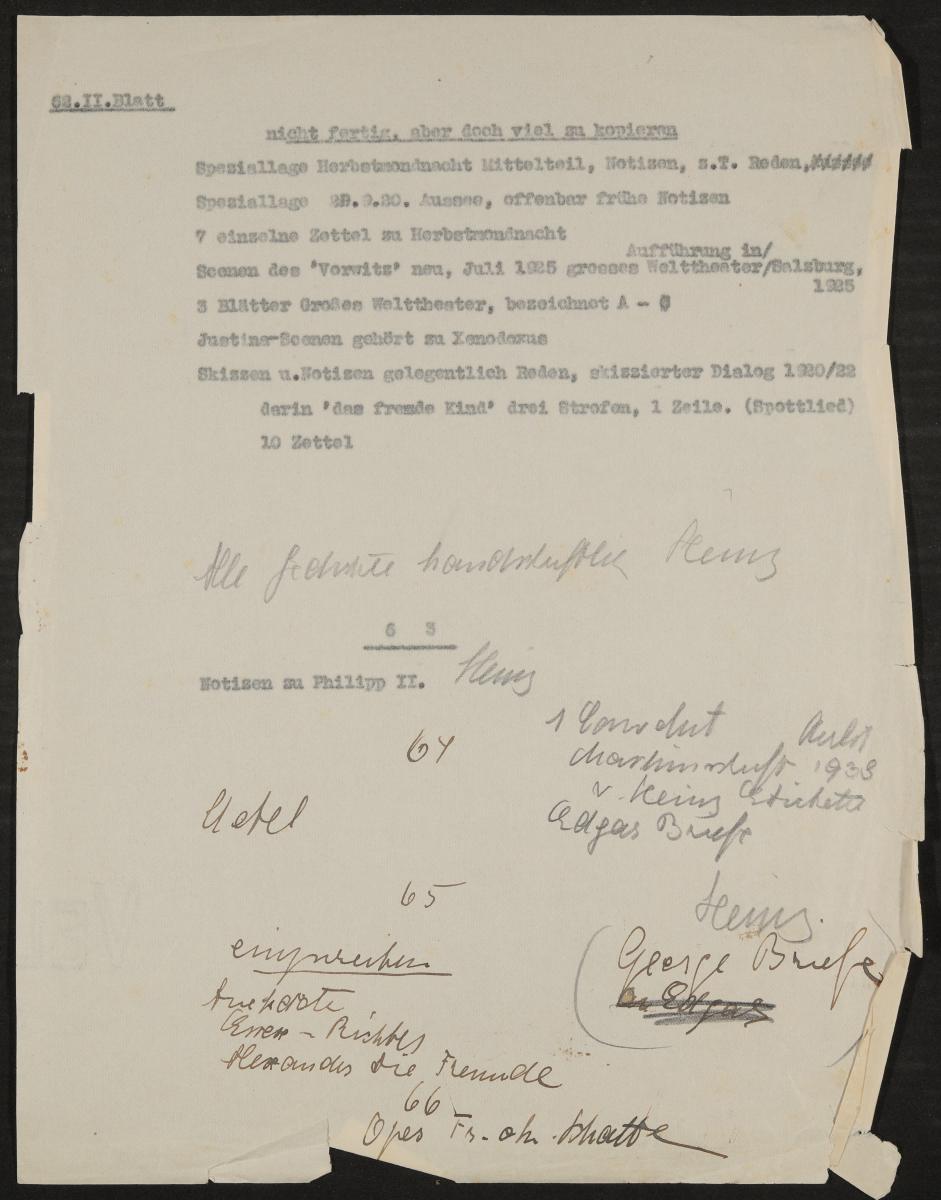 62.II.Blatt
nicht fertig, aber doch viel zu kopieren
Speziallage Herbstmondnacht Mittelteil, Notizen, z.T. Reden,
Speziallage 29.9.20. Aussee, offenbar frühe Notizen
7 einzelne Zettel zu Herbstmondnacht
Aufführung in/
Scenen des 'Vorwitz' neu, Juli 1925 grosses Welttheater/Salzburg,
1925
3 Blätter Großes Welttheater, bezeichnet A - C
Justina-Scenen gehört zu Xenodoxus
Skizzen u.Notizen gelegentlich Reden, skizzierter Dialog 1920/22
darin 'das fremde Kind' drei Strofen, 1 Zeile. (Spottlied)
10 Zettel
Alle Gedichte handschriftlich Heinz
6 3
Notizen zu Philipp II. Heinz
64
1 Convolut
Maschinschrift 1938
v. Heinz Etichette
Edgar Briefe
65
Heinz.
einzureihen
George Briefe
an Edgar
Anekdote
Essex - Richter
Alexander die Freunde
66
Oper Fr. oh. Schatte